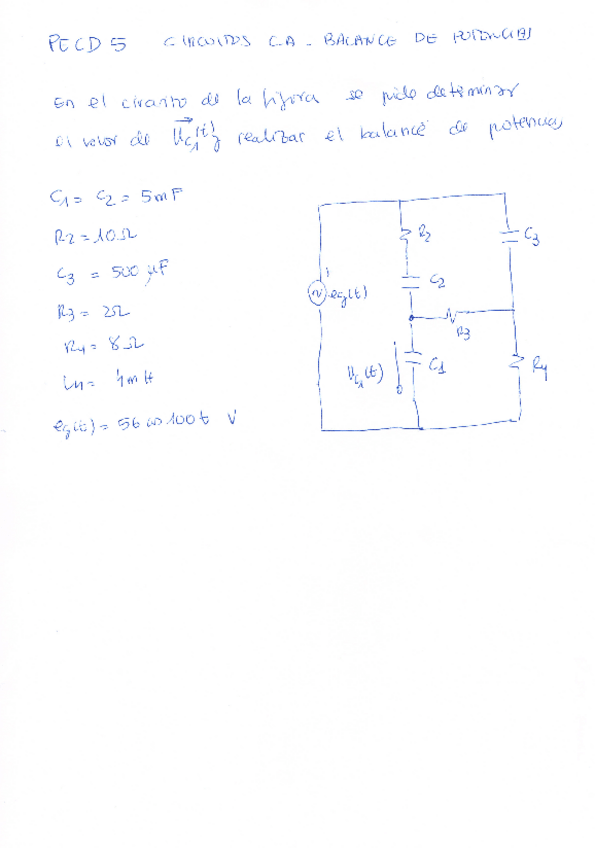 PECD 5 CIRCUITOS C.A - BALANCE DE POTENCIAS
En el circuito de la figura se pide determinar
el valor de Uc1(t) y realizar el balance de potencias
C1 = C2 = 5mF
R2 = 10Ω
C3 = 500 μF
R3 = 2Ω
R4 = 8Ω
L4 = 4mH
eg(t) = 56 cos 100t V
R2
C3
C2
eg(t)
R3
Uc1(t)
C1
R4